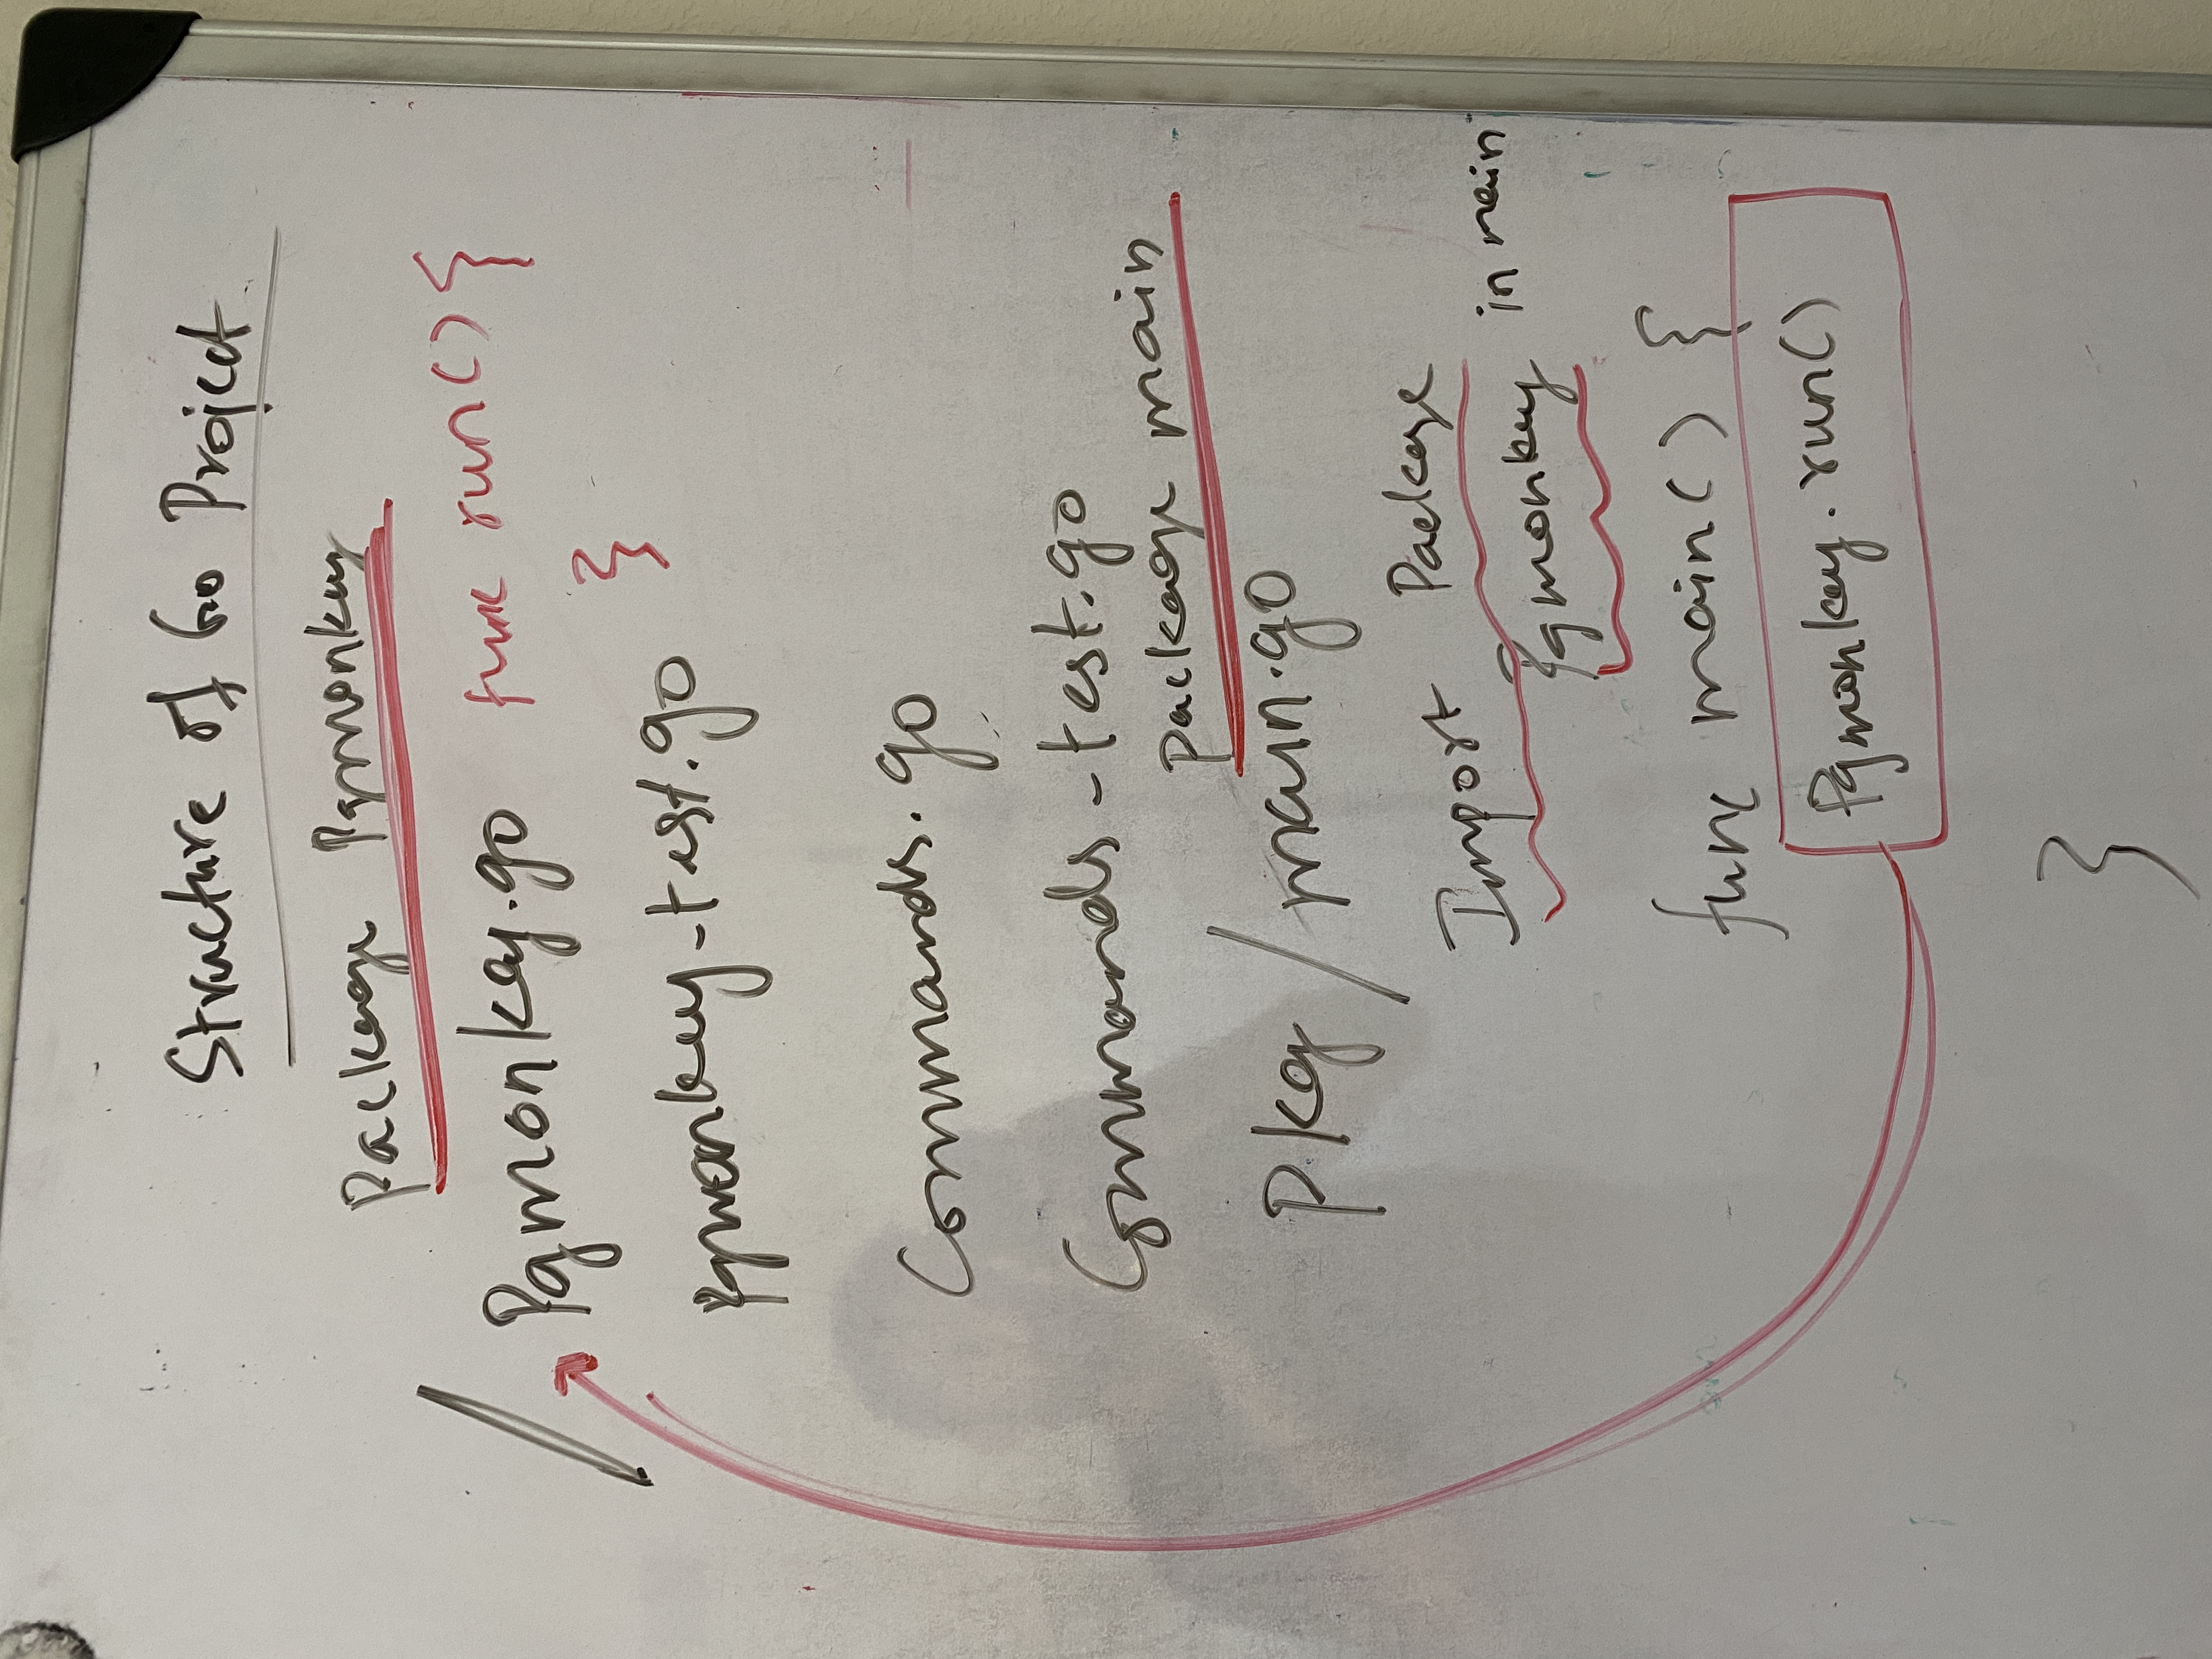 Structure of Go Project
Package Pgmonkey
/
Pgmonkey.go func run() {
}
Pgmonkey_test.go
Commands.go
Commands_test.go
package main
pkg / main.go
Import Package
Pgmonkey in main
func main() {
Pgmonkey.run()
}